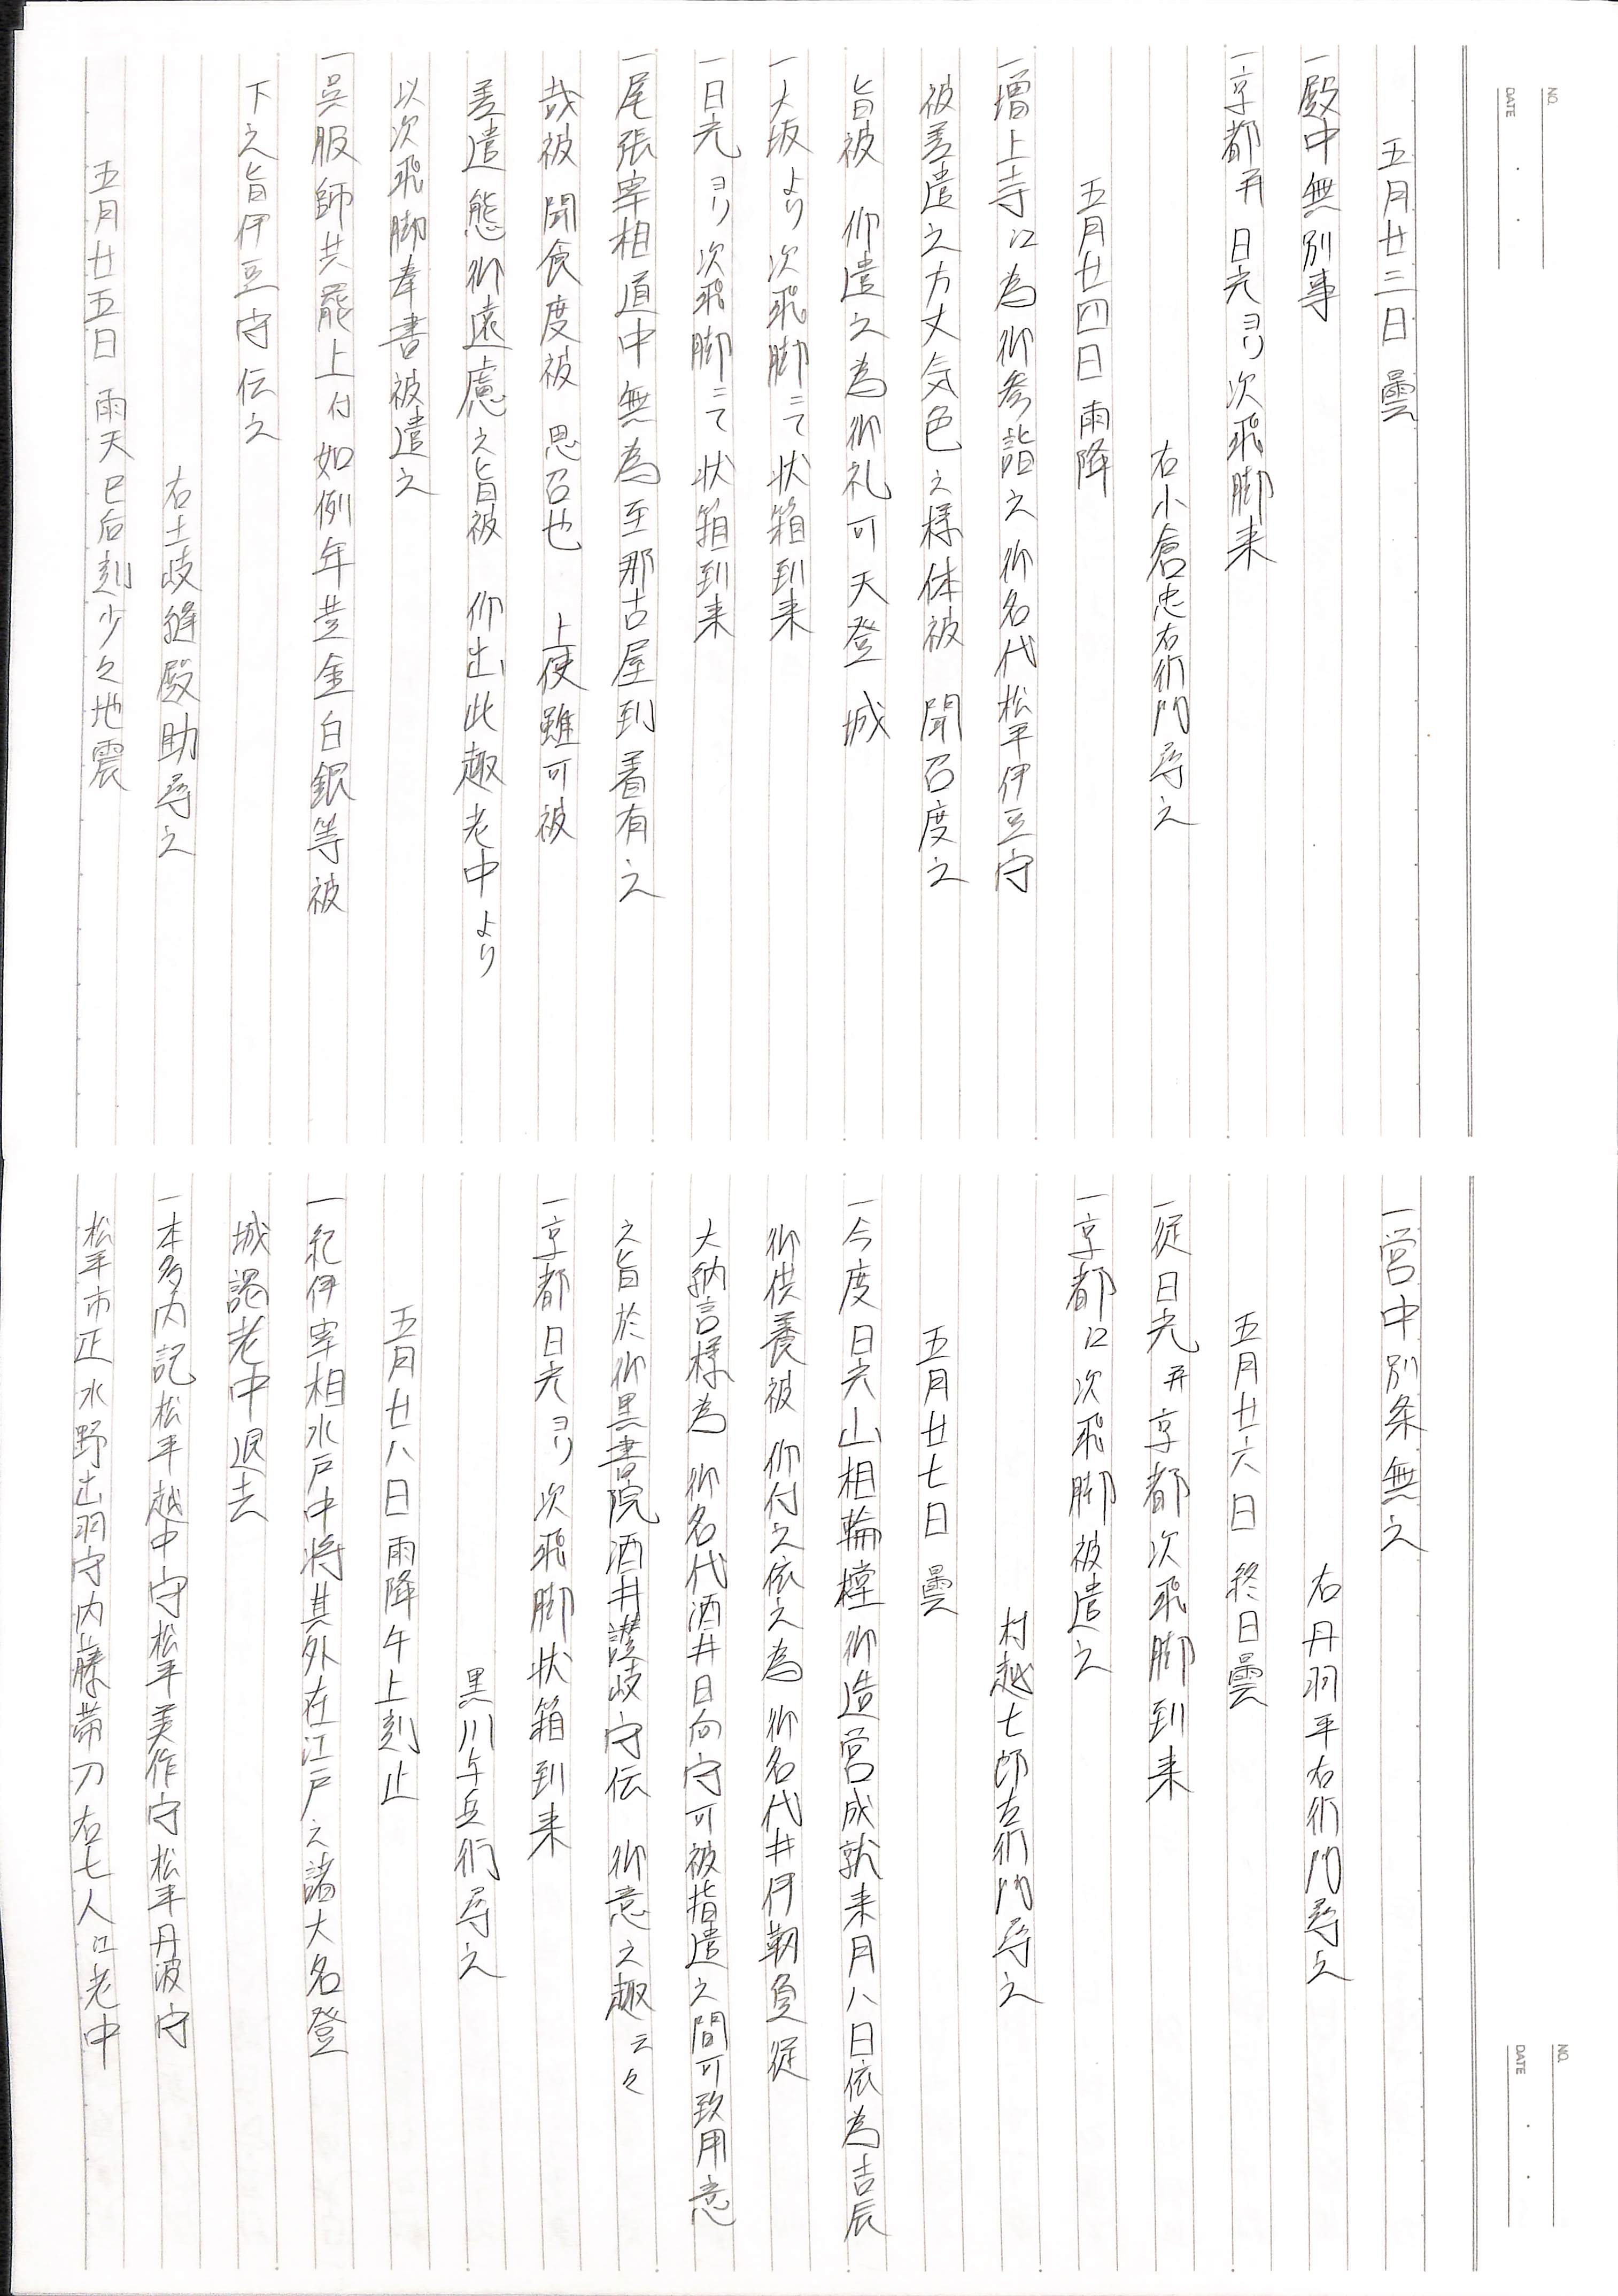 NO.
DATE
五月廿三日 曇
一殿中無別事
一京都并日光ヨリ次飛脚来
右小倉忠右衛門尋之
五月廿四日 雨降
一増上寺江為御参詣之御名代松平伊豆守
被差遣之方丈気色之様体被 聞召度之
旨被 仰遣之為御礼可天登 城
一大坂より次飛脚ニて状箱到来
一日光ヨリ次飛脚ニて状箱到来
一尾張宰相道中無為至那古屋到着有之
哉被 聞食度被 思召也 上使雖可被
差遣態御遠慮之旨被 仰出此趣老中より
以次飛脚奉書被遣之
一呉服師共罷上付如例年黄金白銀等被
下之旨伊豆守伝之
右土岐縫殿助尋之
五月廿五日 雨天巳后刻少々地震
NO.
DATE
一営中別条無之
右丹羽平右衛門尋之
五月廿六日 終日曇
一従日光并京都次飛脚到来
一京都江次飛脚被遣之
村越七郎左衛門尋之
五月廿七日 曇
一今度日光山相輪樘御造営成就来月八日依為吉辰
御供養被 仰付之依之為 御名代井伊靭負従
大納言様為 御名代酒井日向守可被指遣之間可致用意
之旨於御黒書院酒井讃岐守伝 御意之趣云々
一京都日光ヨリ次飛脚状箱到来
黒川与兵衛尋之
五月廿八日 雨降午上刻止
一紀伊宰相水戸中将其外在江戸之諸大名登
城謁老中退去
一本多内記松平越中守松平美作守松平丹波守
松平市正水野出羽守内藤帯刀右七人江老中